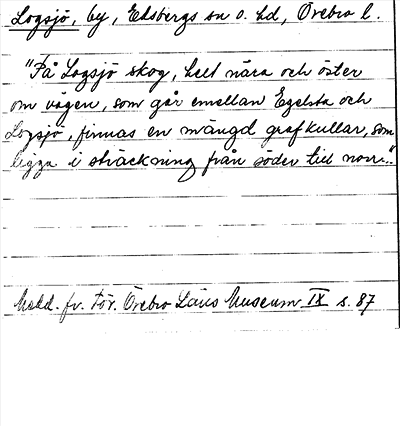 Logsjö, by, Edsbergs sn o. hd, Örebro l.
"På Logsjö skog, helt nära och öster
om vägen, som går emellan Egelsta och
Logsjö, finnas en mängd grafkullar, som
ligga i sträckning från söder till norr."
Medd. fr. För. Örebro Läns Museum IX s. 87